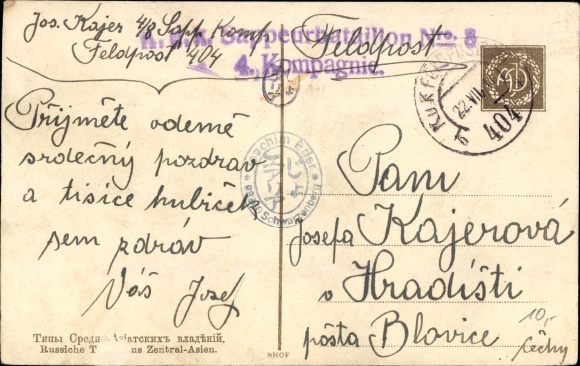 Jos. Kajer 4/8 Sapp. Komp.
Feldpost 404
K.u.k. Sappeurbataillon Nr. 8
4. Kompagnie.
Feldpost
K.u.K. 
22.VII.
404
b
Přijměte odemě
srdečný pozdrav
a tisíce hubiček
sem zdráv
Váš Josef
Joachim Erler
Schwarzenberg
Pani
Josefa Kajerová
v Hradišti
pošta Blovice
10,-
čechy
Типы Средне-Азіатскихъ владѣній.
Russiche T ns Zentral-Asien.
SHOF